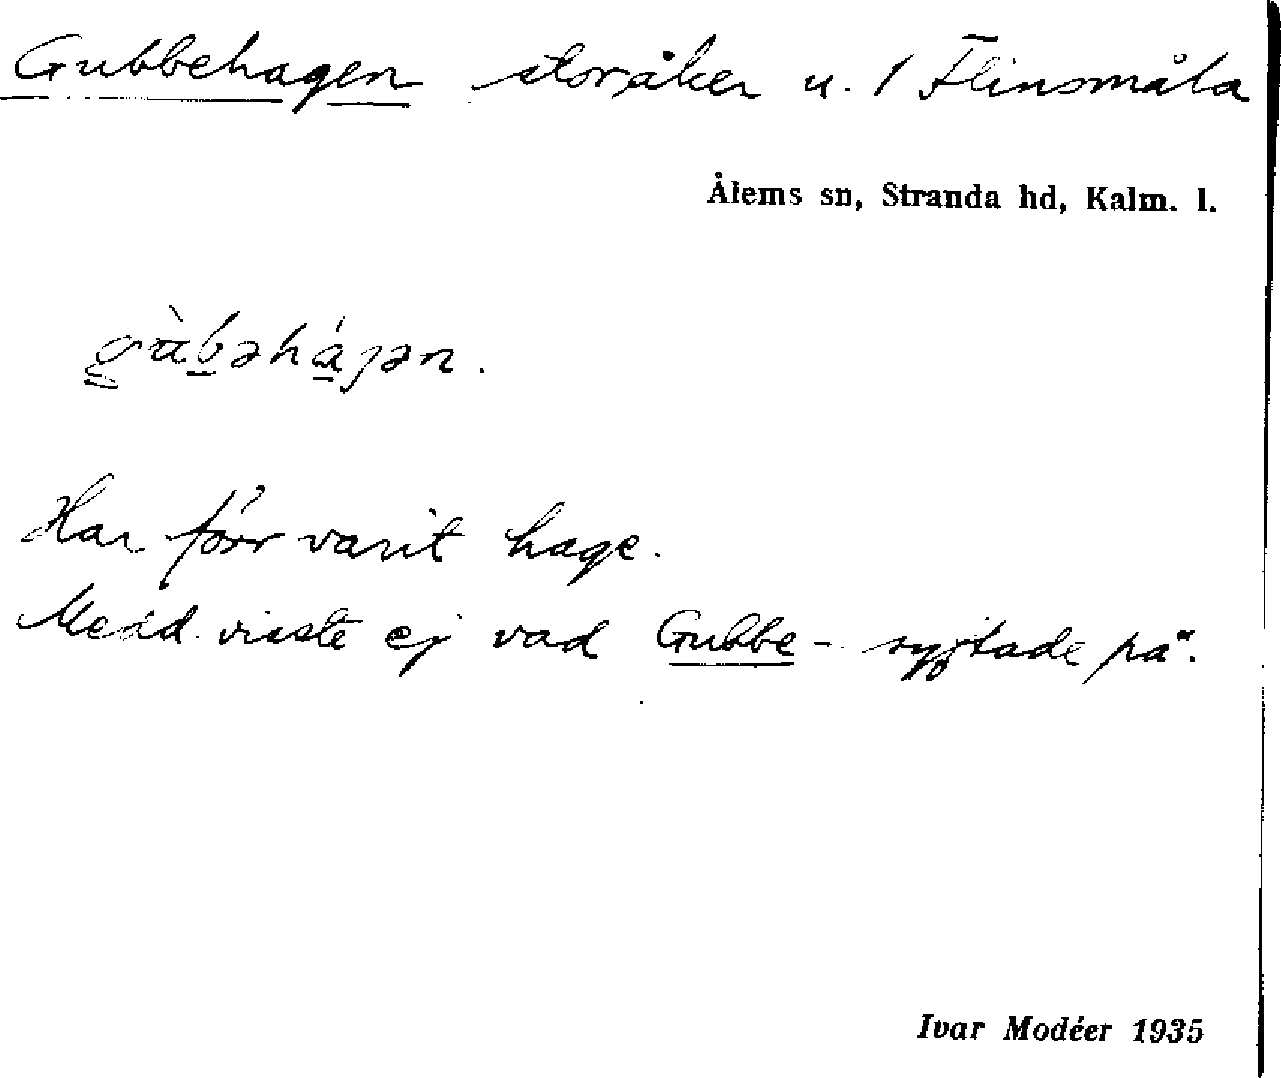 Gubbehagen storåker u. 1 Flinsmåla
Ålems sn, Stranda hd, Kalm. l.
gùbəháɡən.
Har förr varit hage.
Medd. visste ej vad Gubbe- syftade på.
Ivar Modéer 1935